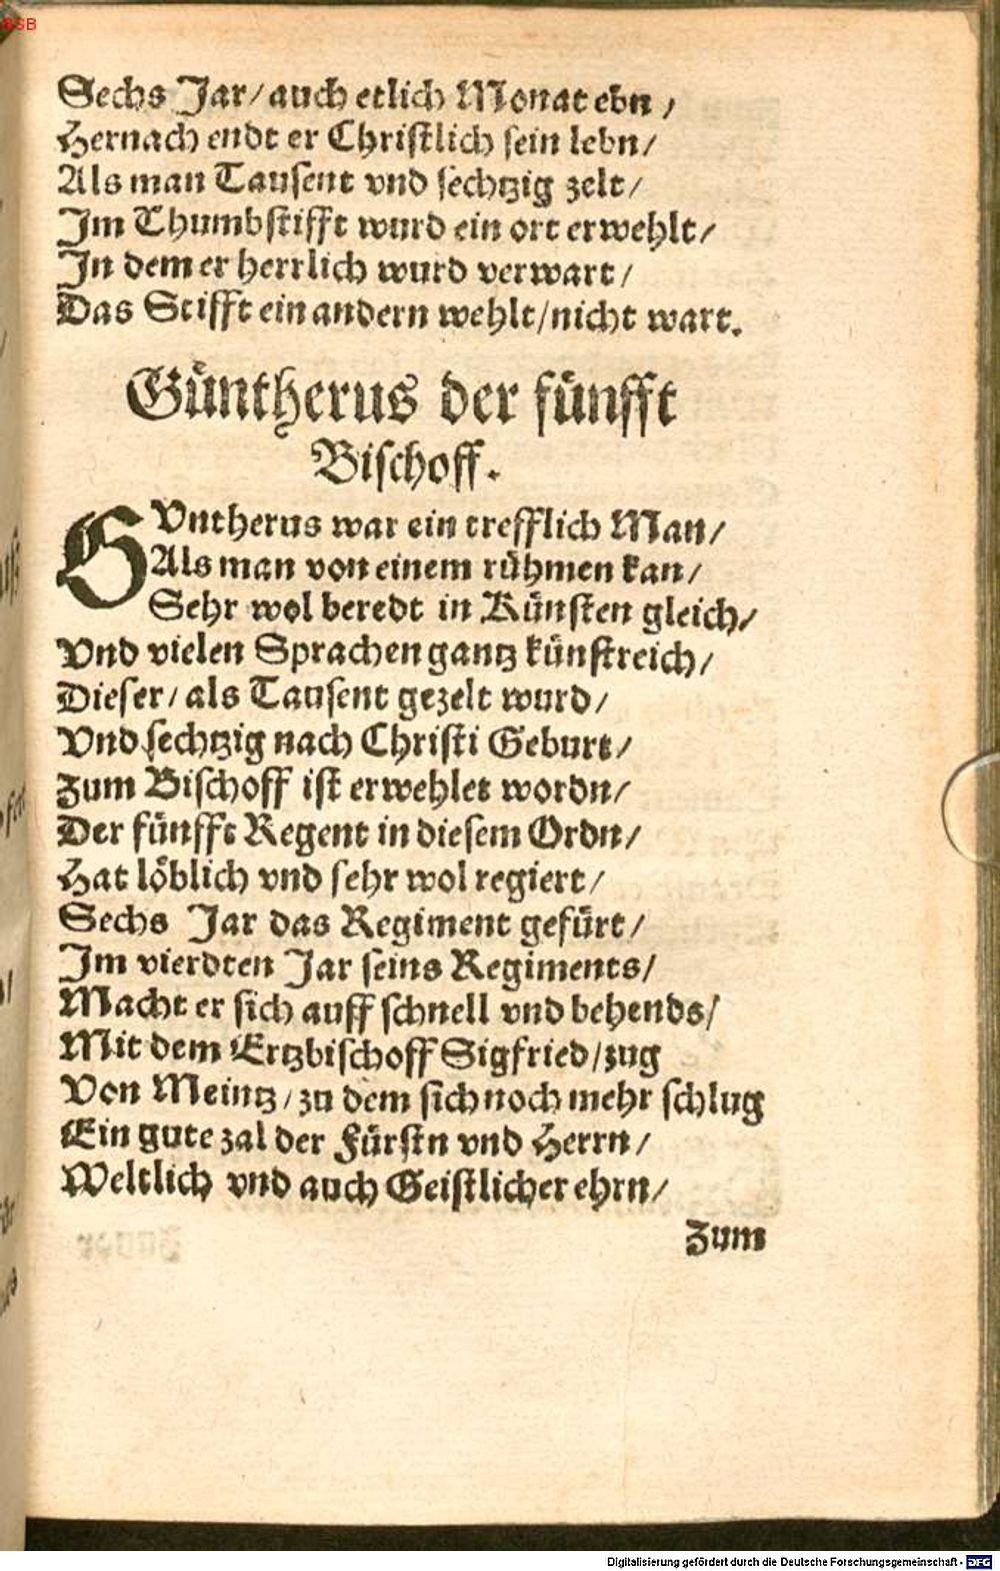 BSB
Sechs Jar/ auch etlich Monat ebn /
Hernach endt er Christlich sein lebn/
Als man Tausent vnd sechtzig zelt/
Im Thumbstifft wurd ein ort erwehlt/
In dem er herrlich wurd verwart/
Das Stifft ein andern wehlt/nicht wart.
Güntherus der fünfft
Bischoff.
GVntherus war ein trefflich Man/
Als man von einem rühmen kan/
Sehr wol beredt in Künsten gleich/
Vnd vielen Sprachen gantz künstreich/
Dieser/ als Tausent gezelt wurd/
Vnd sechtzig nach Christi Geburt/
Zum Bischoff ist erwehlet wordn/
Der fünfft Regent in diesem Ordn/
Hat löblich vnd sehr wol regiert/
Sechs Jar das Regiment gefürt/
Im vierdten Jar seins Regiments/
Macht er sich auff schnell vnd behends/
Mit dem Ertzbischoff Sigfried/zug
Von Meintz/zu dem sich noch mehr schlug
Ein gute zal der Fürstn vnd Herrn/
Weltlich vnd auch Geistlicher ehrn/
Zum
Digitalisierung gefördert durch die Deutsche Forschungsgemeinschaft - DFG